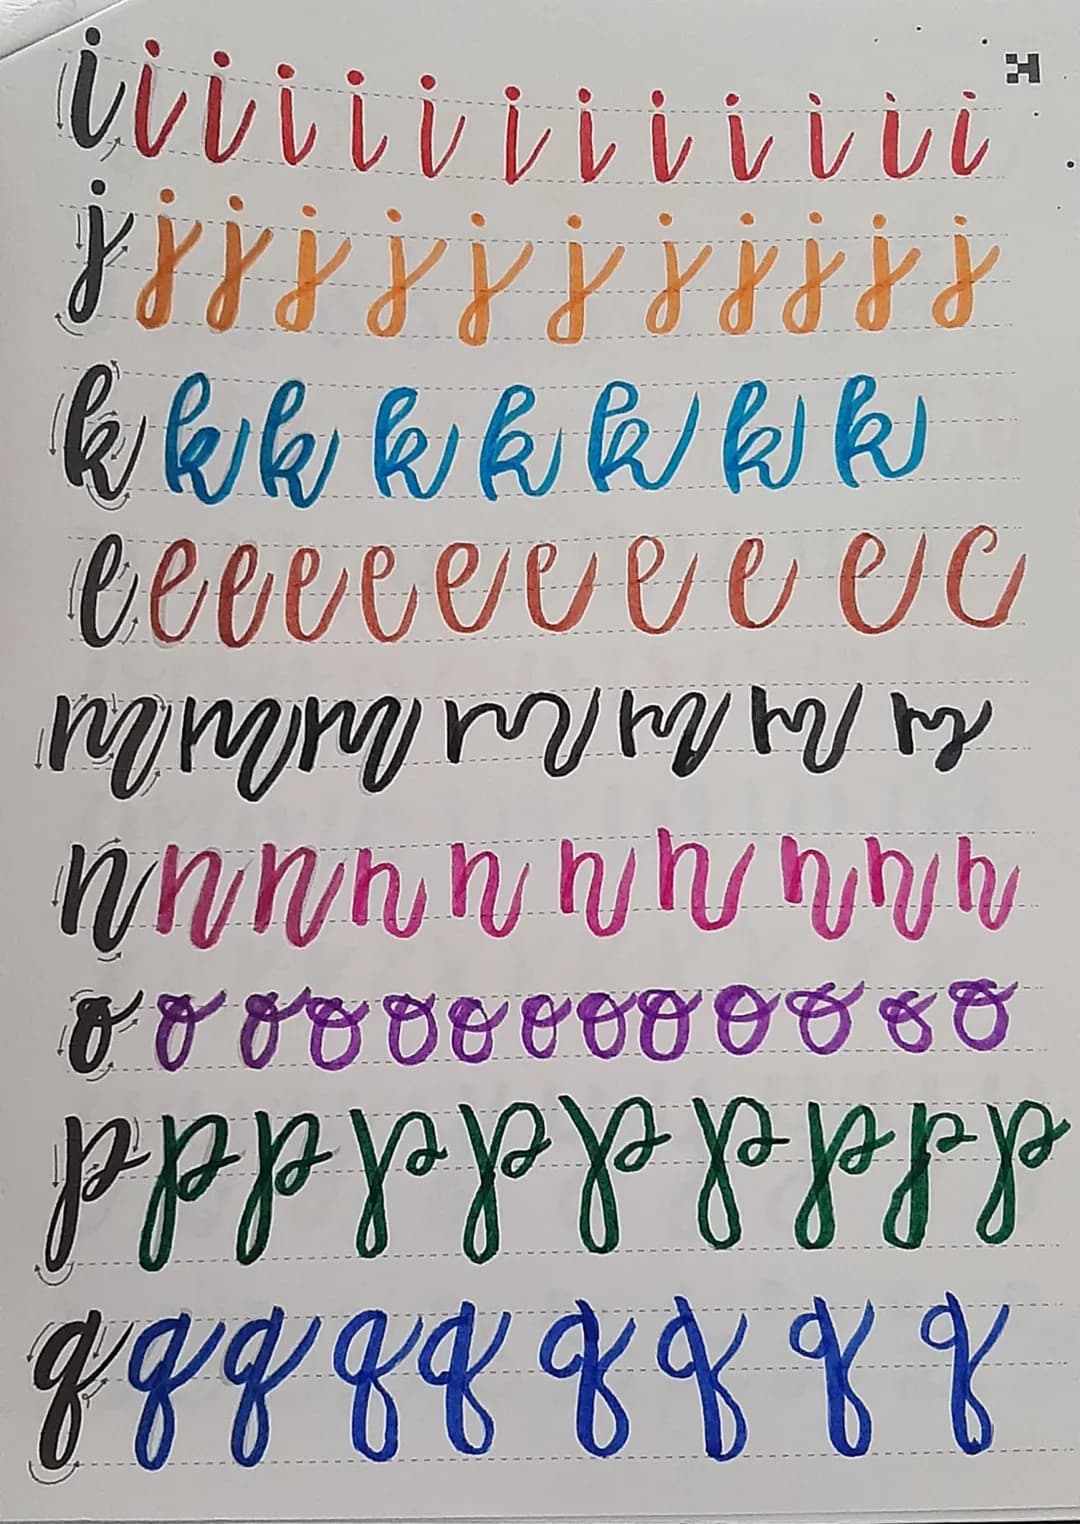 i i i i i i i i i i i i i
j j j j j j j j j j j j
k k k k k k k k
l l l l l l l l l l l
m m m m m m m
n n n n n n n n n n
o o o o o o o o o o o o o
p p p p p p p p p p
q q q q q q q q q